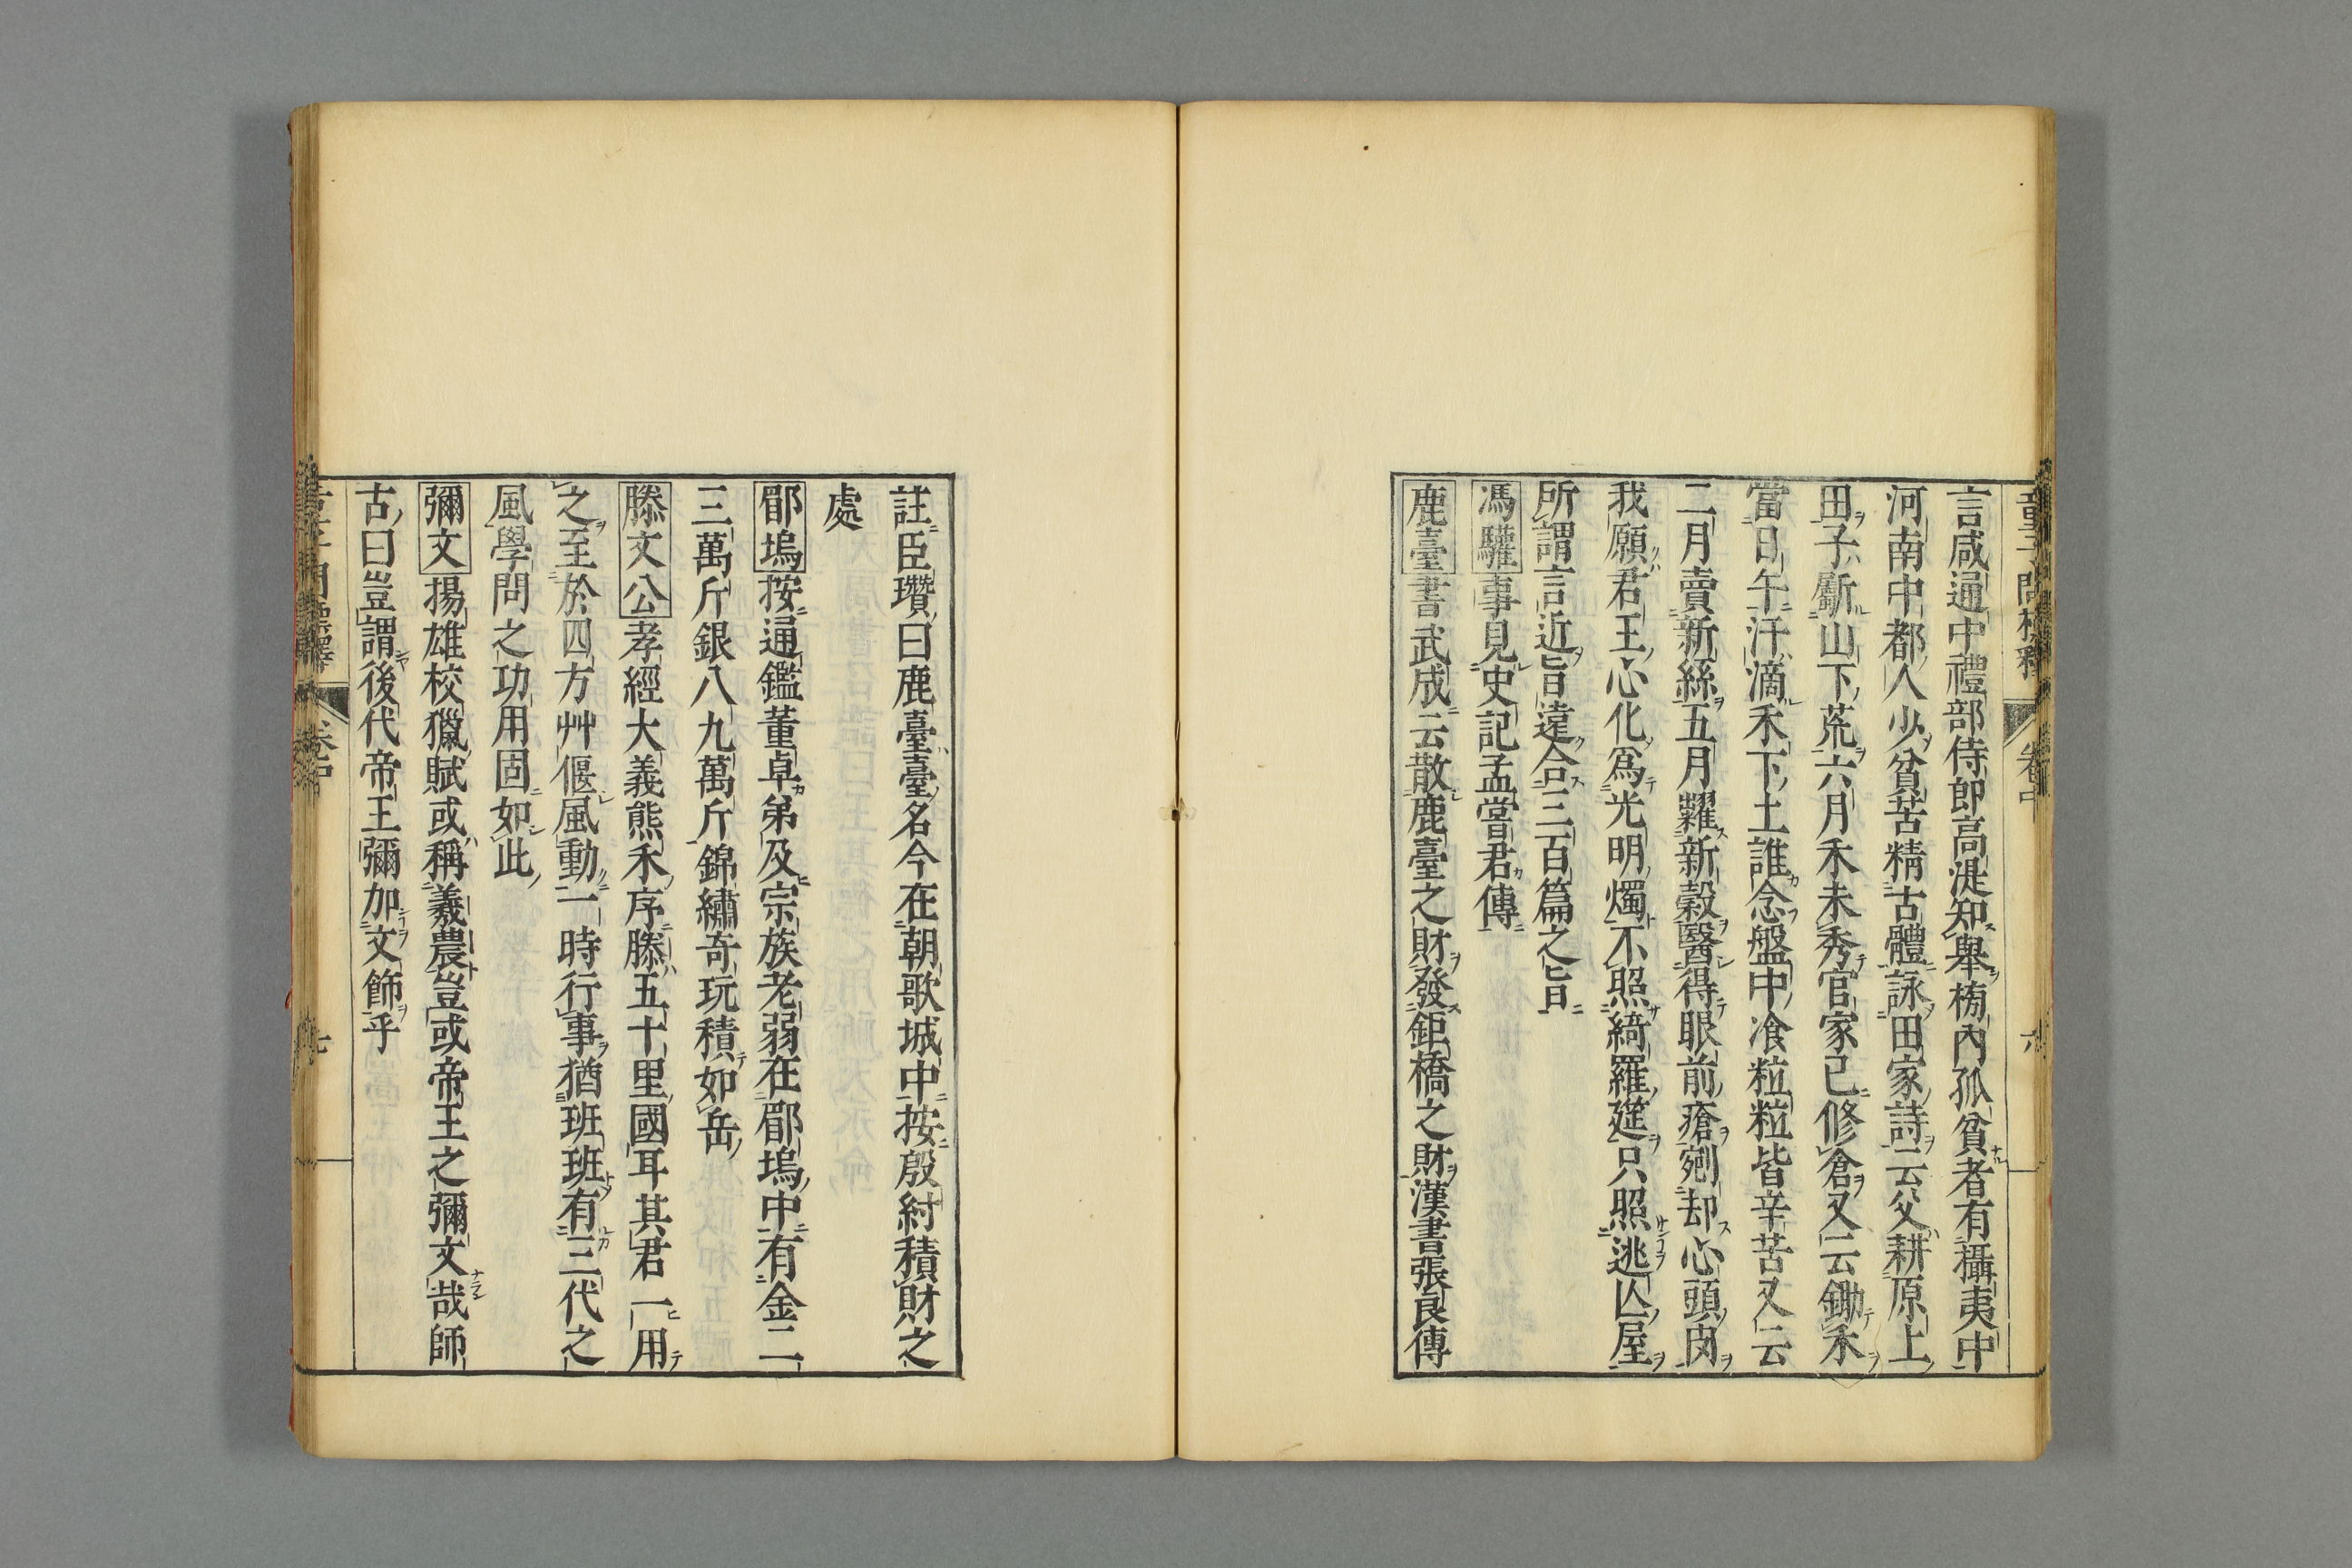 童子問標釋 卷中 六
言咸通中禮部侍郎高湜知舉榜內孤貧者有攝夷中
河南中都人少貧苦精古體詠田家詩云父耕原上
田子劚山下荒六月禾未秀官家已修倉又云鋤禾
當日午汗滴禾下土誰念盤中飡粒粒皆辛苦又云
二月賣新絲五月糶新穀醫得眼前瘡剜却心頭肉
我願君王心化爲光明燭不照綺羅筵只照逃亾屋
所謂言近旨遠合三百篇之旨
馮驩事見史記孟嘗君傳
鹿臺書武成云散鹿臺之財發鉅橋之財漢書張良傳
註臣瓚曰鹿臺臺名今在朝歌城中按殷紂積財之
處
郿塢按通鑑董卓弟及宗族老弱在郿塢中有金二
三萬斤銀八九萬斤錦繡奇玩積如岳
滕文公孝經大義熊禾序滕五十里國耳其君一用
之至於四方艸偃風動一時行事猶班班有三代之
風學問之功用固如此
彌文揚雄校獵賦或稱羲農豈或帝王之彌文哉師
古曰豈謂後代帝王彌加文飾乎
童子問標釋 卷中 七